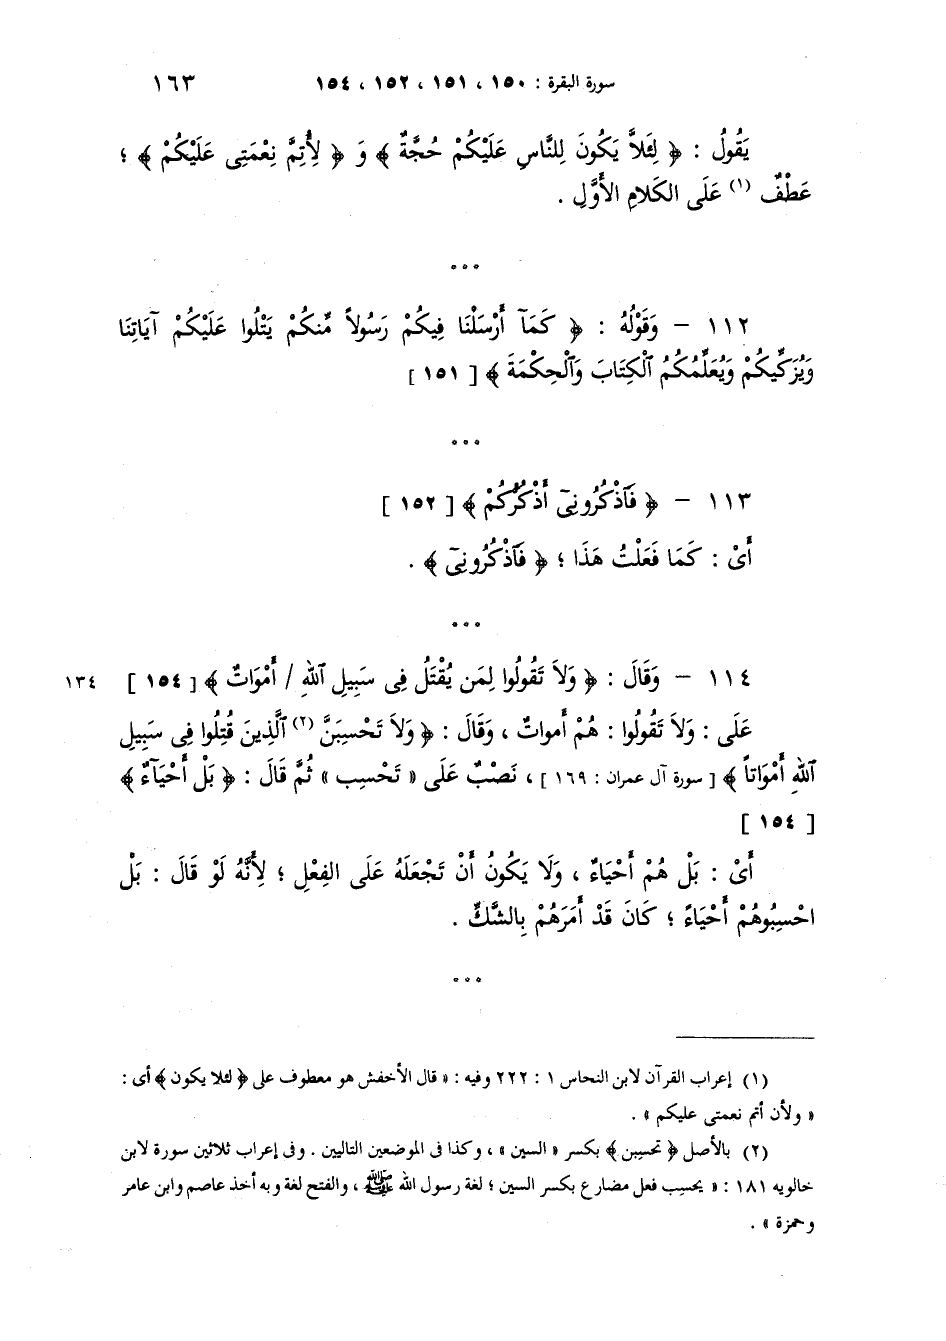 سورة البقرة : ١٥٠ ، ١٥١ ، ١٥٢ ، ١٥٤ ١٦٣
يَقُولُ : ﴿ لِئَلاَّ يَكُونَ لِلنَّاسِ عَلَيْكُمْ حُجَّةٌ ﴾ وَ ﴿ لِأُتِمَّ نِعْمَتِى عَلَيْكُمْ ﴾ ؛
عَطْفٌ (١) عَلَى الكَلامِ الأَوَّلِ .
°°°
١١٢ – وَقَوْلُهُ : ﴿ كَمَآ أَرْسَلْنَا فِيكُمْ رَسُولاً مِّنكُمْ يَتْلُوا عَلَيْكُمْ آيَاتِنَا
وَيُزَكِّيكُمْ وَيُعَلِّمُكُمُ ٱلْكِتَابَ وَٱلْحِكْمَةَ ﴾ [ ١٥١ ]
°°°
١١٣ – ﴿ فَٱذْكُرُونِىٓ أَذْكُرْكُمْ ﴾ [ ١٥٢ ]
أَىْ : كَمَا فَعَلْتُ هَذَا ؛ ﴿ فَٱذْكُرُونِىٓ ﴾ .
°°°
١١٤ – وَقَالَ : ﴿ وَلاَ تَقُولُوا لِمَن يُقْتَلُ فِى سَبِيلِ ٱللهِ / أَمْوَاتٌ ﴾ [ ١٥٤ ] ١٣٤
عَلَى : وَلاَ تَقُولُوا : هُمْ أَمواتٌ ، وَقَالَ : ﴿ وَلاَ تَحْسِبَنَّ (٢) ٱلَّذِينَ قُتِلُوا فِى سَبِيلِ
ٱللهِ أَمْوَاتاً ﴾ [ سورة آل عمران : ١٦٩ ] ، نَصْبٌ عَلَى « تَحْسِب » ثُمَّ قَالَ : ﴿ بَلْ أَحْيَآءٌ ﴾
[ ١٥٤ ]
أَىْ : بَلْ هُمْ أَحْيَاءٌ ، وَلَا يَكُونُ أَنْ تَجْعَلَهُ عَلَى الفِعْلِ ؛ لِأَنَّهُ لَوْ قَالَ : بَلْ
احْسِبُوهُمْ أَحْيَاءً ؛ كَانَ قَدْ أَمَرَهُمْ بِالشَّكِّ .
°°°
(١) إعراب القرآن لابن النحاس ١ : ٢٢٢ وفيه : « قال الأخفش هو معطوف على ﴿ لئلا يكون ﴾ أى :
« ولأن أتم نعمتى عليكم » .
(٢) بالأصل ﴿ تحسِبن ﴾ بكسر « السين » ، وكذا فى الموضعين التاليين . وفى إعراب ثلاثين سورة لابن
خالويه ١٨١ : « يحسِب فعل مضارع بكسر السين ؛ لغة رسول الله ﷺ ، والفتح لغة وبه أخذ عاصم وابن عامر
وحمزة » .